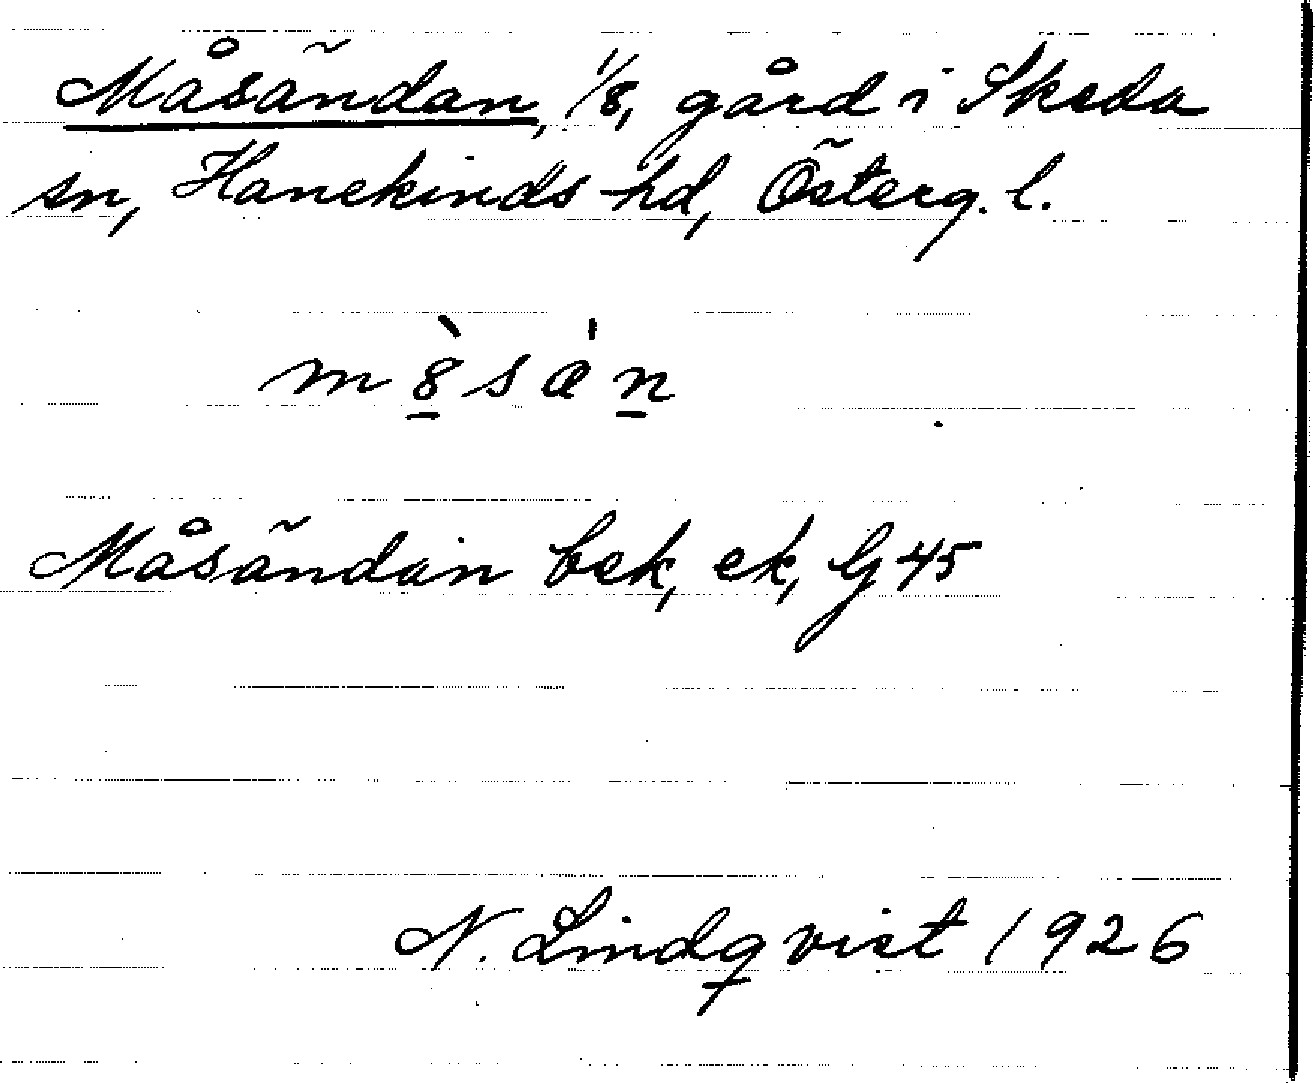 Måsändan, 1/8, gård i Skeda
sn, Hanekinds hd, Österg. l.
Måsändan bek, ek, G 45
N. Lindqvist 1926